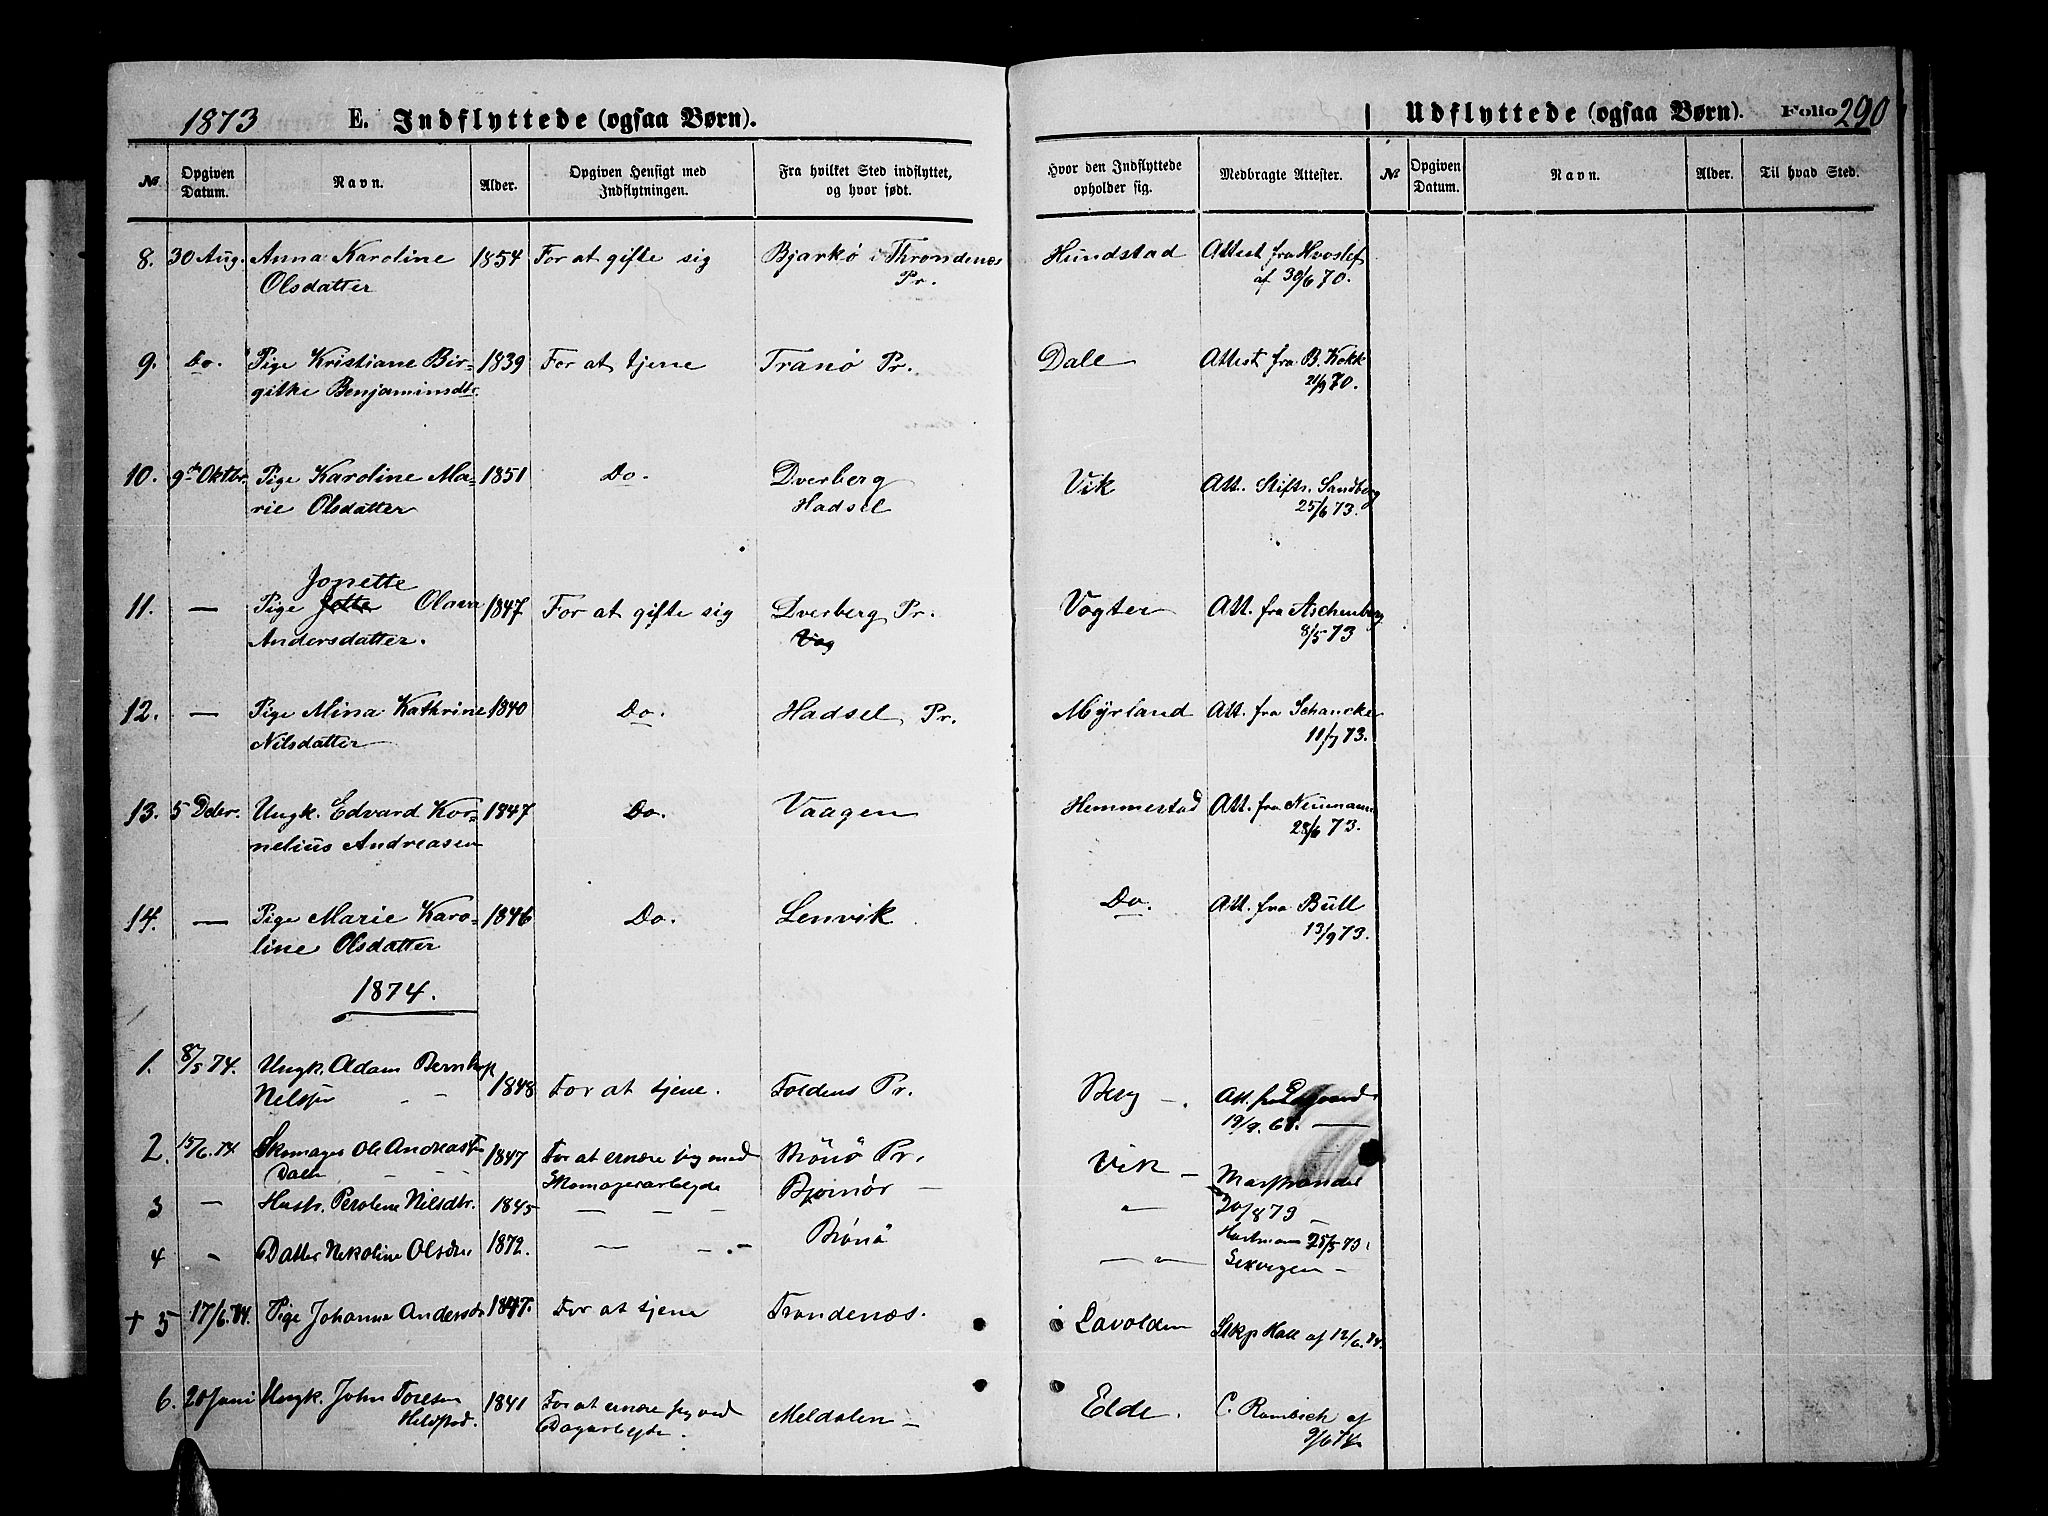 1873 E. Indflyttede (ogsaa Børn). Udflyttede (ogsaa Børn). Folio 290
№ Opgiven Datum. Navn. Alder. Opgiven Hensigt med Indflytningen. Fra hvilket Sted indflyttet, og hvor født. Hvor den Indflyttede opholder sig. Medbragte Attester. № Opgiven Datum. Navn. Alder. Til hvad Sted.
8. 30 Aug. Anna Karoline 1854 For at gifte sig Bjarkö i Throndenæs Hundstad Attest fra Hvoslef
Olsdatter Pr. af 30/6 70.
9. Do. Pige Kristiane Bir- 1839 For at tjene Tranö Pr. Dale Attest fra B. Kokk
gitte Benjaminsdtr. 21/9 70.
10. 9de Oktbr. Pige Karoline Ma- 1851 Do. Dverberg Vik Att. Stiftr. Sandberg
rie Olsdatter Hadsel 25/6 73.
Jonette
11. — Pige Jotte Olava 1847 For at gifte sig Dverberg Pr. Vogter Att. fra Aschenberg
Andersdatter. Vog 8/5 73
12. — Pige Mina Kathrine 1840 Do. Hadsel Pr. Myrland Att. fra Schancke
Nilsdatter 11/7 73.
13. 5 Debr. Ungk. Edvard Kor- 1847 Do. Vaagen Hemmestad Att. fra Neumann
nelius Andreasen 28/6 73.
14. — Pige Marie Karo- 1846 Do. Lenvik Do. Att. fra Bull
line Olsdatter 13/9 73.
1874.
1. 8/5 74. Ungk. Adam
Nelsen 1848 For at tjene. Foldens Pr. Berg —. Att. fra
19/9. 68. —
2. 15/6. 74. Skomager Ole Andreas 1847 For at ernære sig med Brönö Pr. Vik —
Dall Skomagerarbejde
3 — Hustr. Perolene Nilsdtr. 1845 — — — Bjørnör — " 20/8 73 —
4 - Datter Nekoline Olsdtr 1872. — -.- Brönö — " Hartmann 25/5 73.
+ 5 17/6. 74. Pige Johanna Andersdr 1847. For at tjene Trondenæs. Lavolden Stkp Hall af 12/6. 74.
6. 20 Juni Ungk. John Toresen 1841 For at ernære sig ved Meldalen — Elde. C. Rambech af
Dagarbejde. 9/6 74